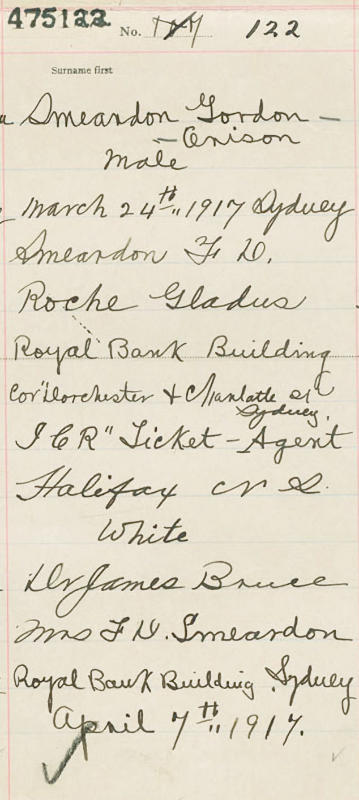 475122 No. 122
Surname first
Smeardon Gordon -
- Enison
Male
March 24th, 1917 Sydney
Smeardon F D.
Roche Gladus
Royal Bank Building
Cor" Dorchester & Charlatte St
Sydney.
I C R" Ticket - Agent
Halifax N S.
White
Dr James Bruce
Mrs F D. Smeardon
Royal Bank Building, Sydney
April 7th, 1917.